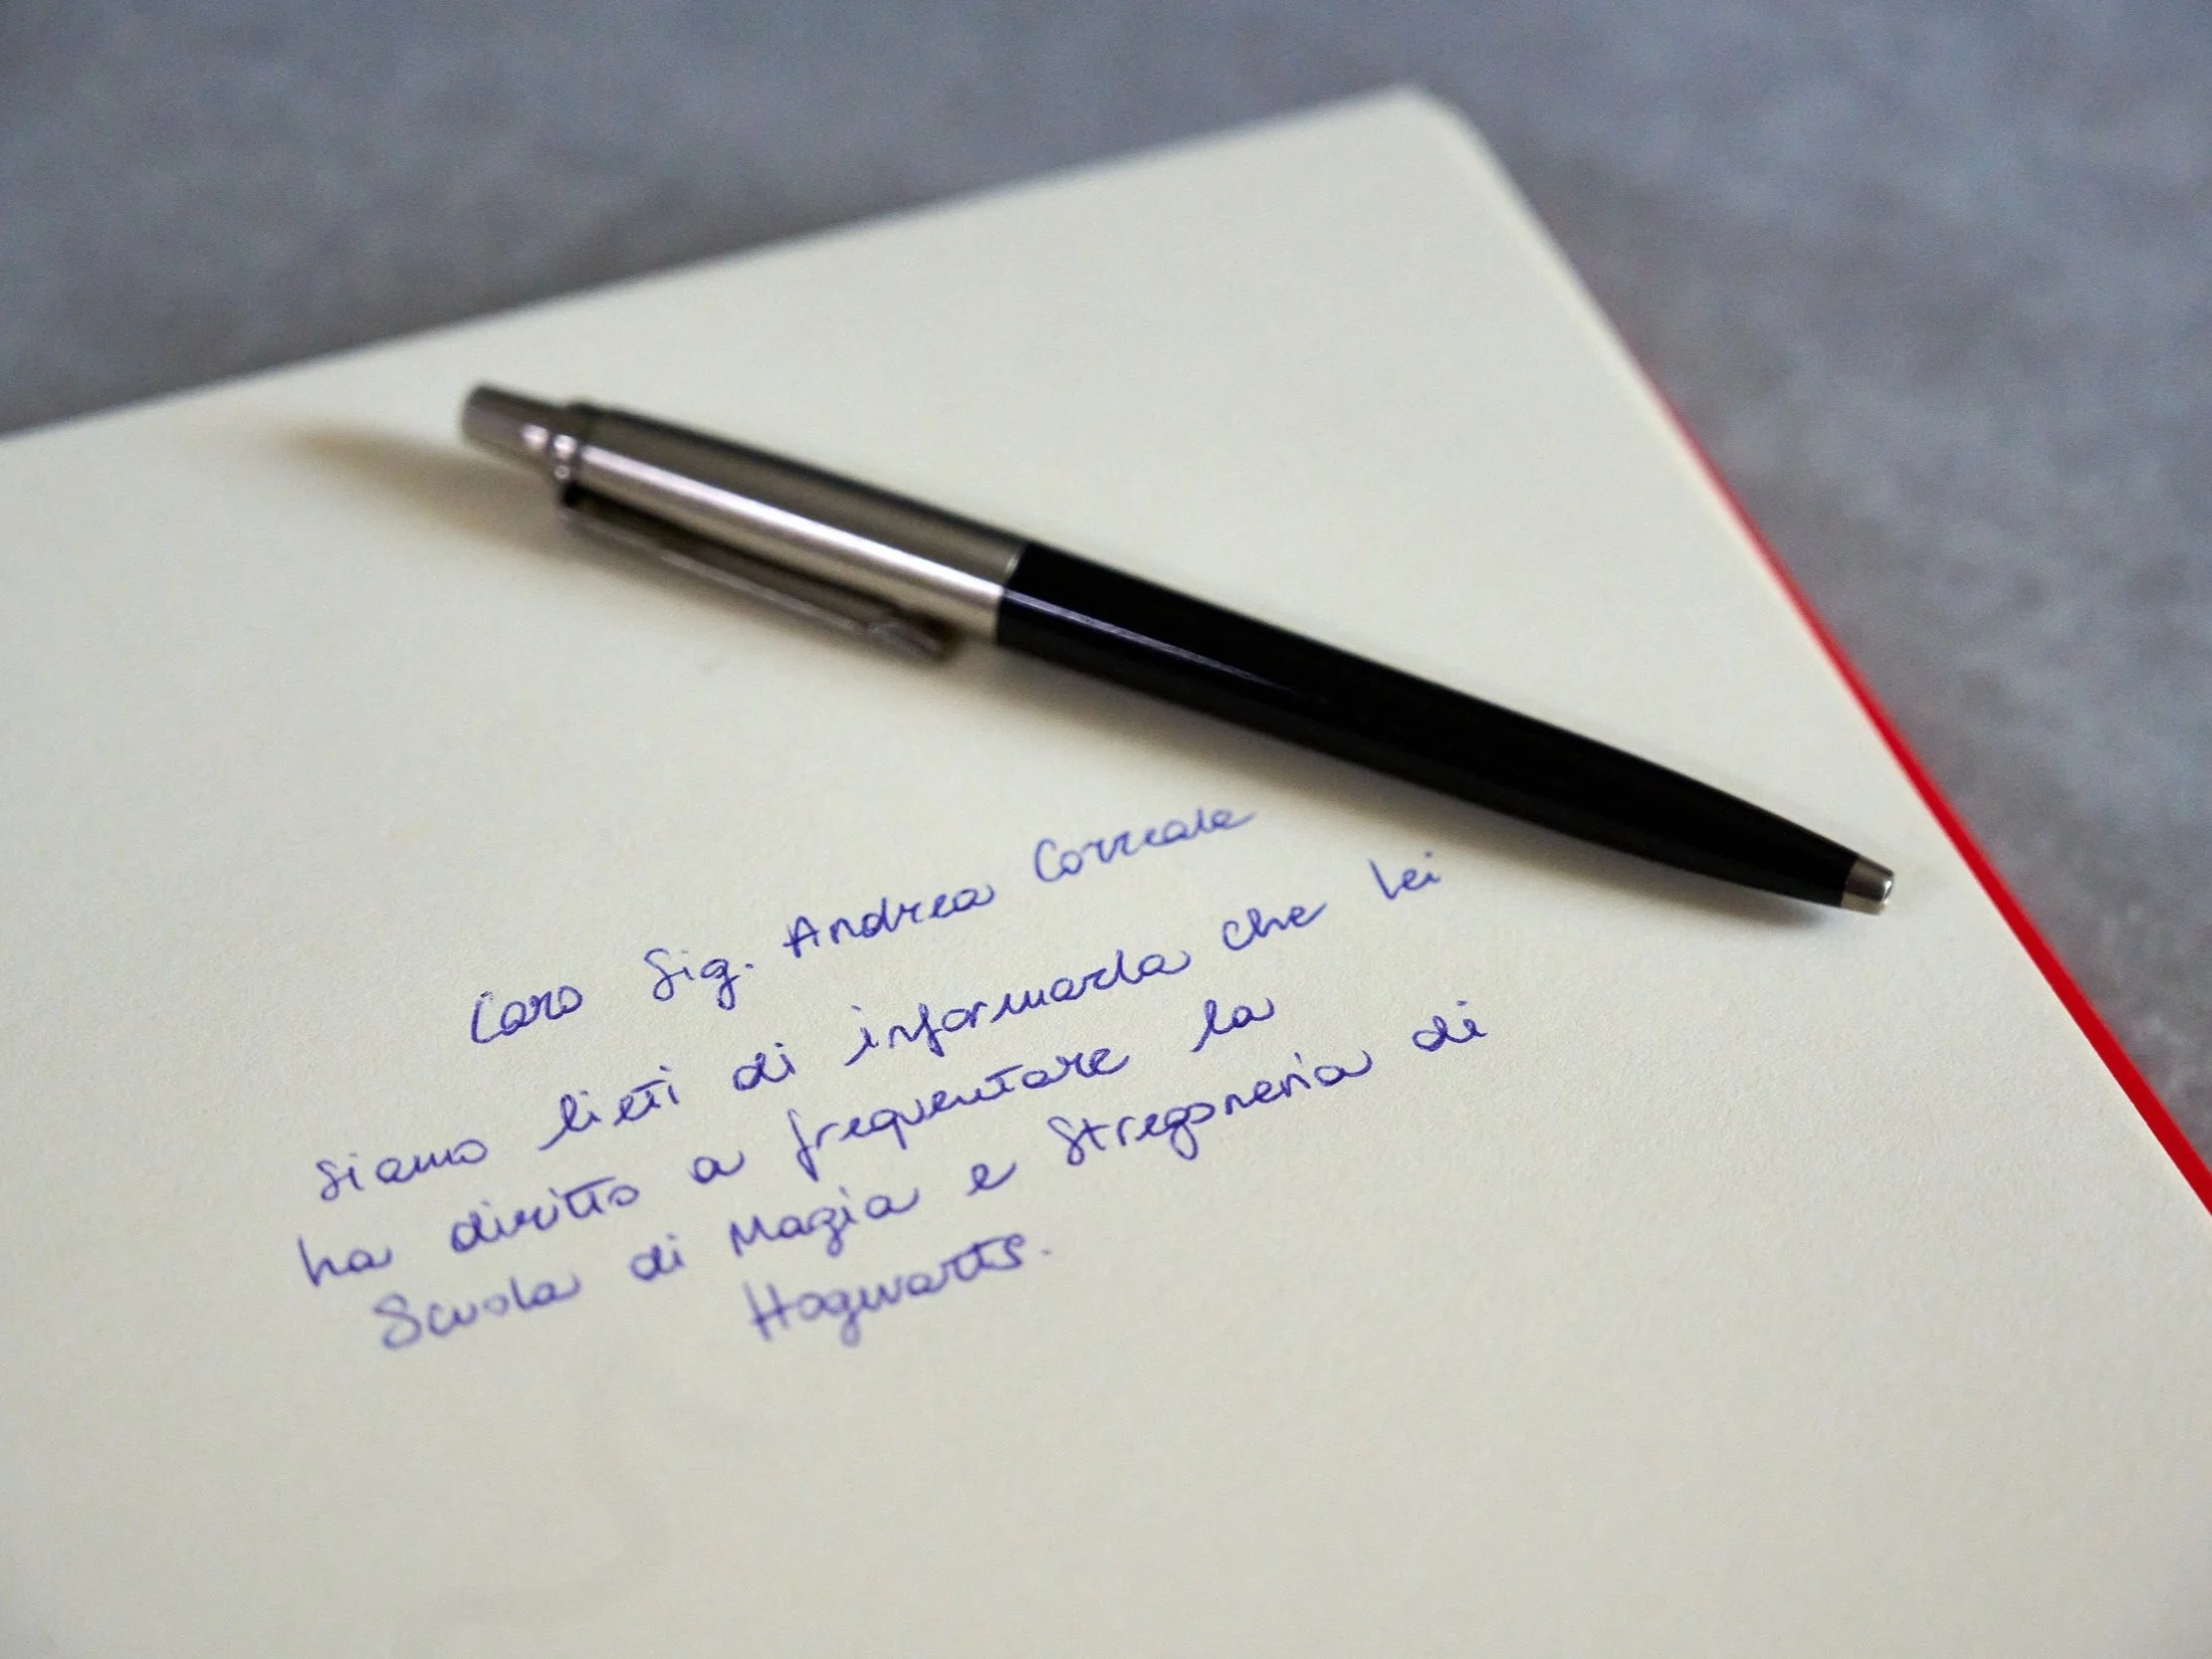 Caro Sig. Andrea Correale
Siamo lieti di informarla che lei
ha diritto a frequentare la
Scuola di Magia e Stregoneria di
Hogwarts.